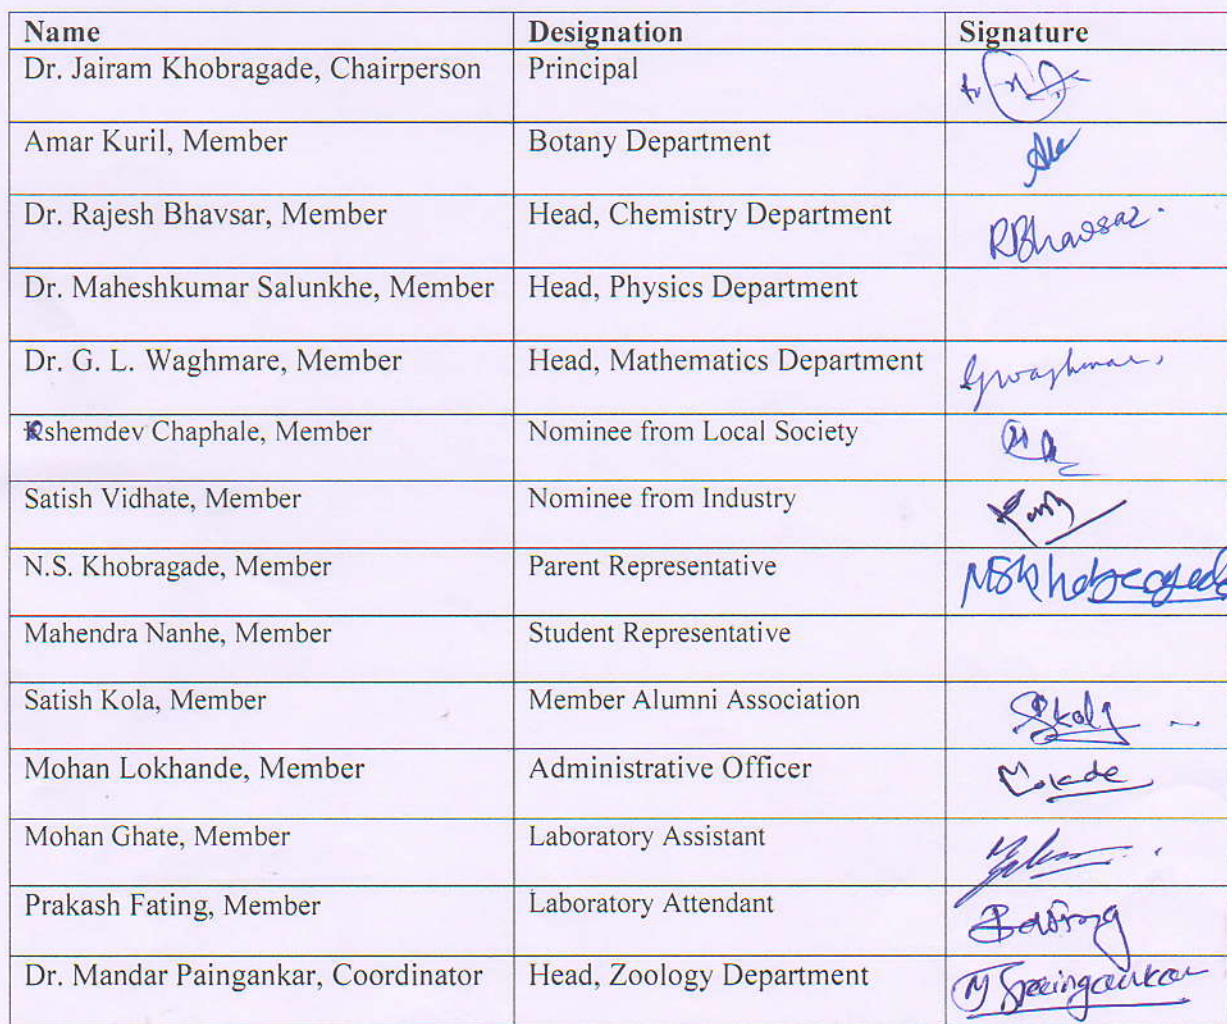 Name Designation Signature
Dr. Jairam Khobragade, Chairperson Principal
Amar Kuril, Member Botany Department
Dr. Rajesh Bhavsar, Member Head, Chemistry Department RBhavsar.
Dr. Maheshkumar Salunkhe, Member Head, Physics Department
Dr. G. L. Waghmare, Member Head, Mathematics Department
Kshemdev Chaphale, Member Nominee from Local Society
Satish Vidhate, Member Nominee from Industry
N.S. Khobragade, Member Parent Representative NSKhobragade
Mahendra Nanhe, Member Student Representative
Satish Kola, Member Member Alumni Association SKola
Mohan Lokhande, Member Administrative Officer
Mohan Ghate, Member Laboratory Assistant
Prakash Fating, Member Laboratory Attendant
Dr. Mandar Paingankar, Coordinator Head, Zoology Department